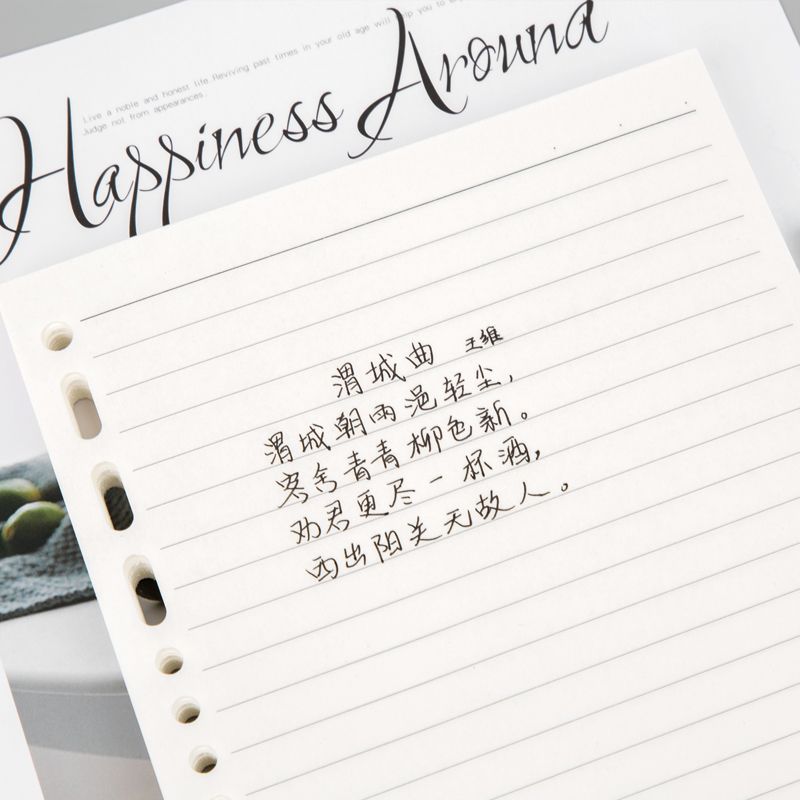 Happiness Around
Live a noble and honest life.Reviving past times in your old age will help you to
Judge not from appearances.
渭城曲 王维
渭城朝雨浥轻尘，
客舍青青柳色新。
劝君更尽一杯酒，
西出阳关无故人。